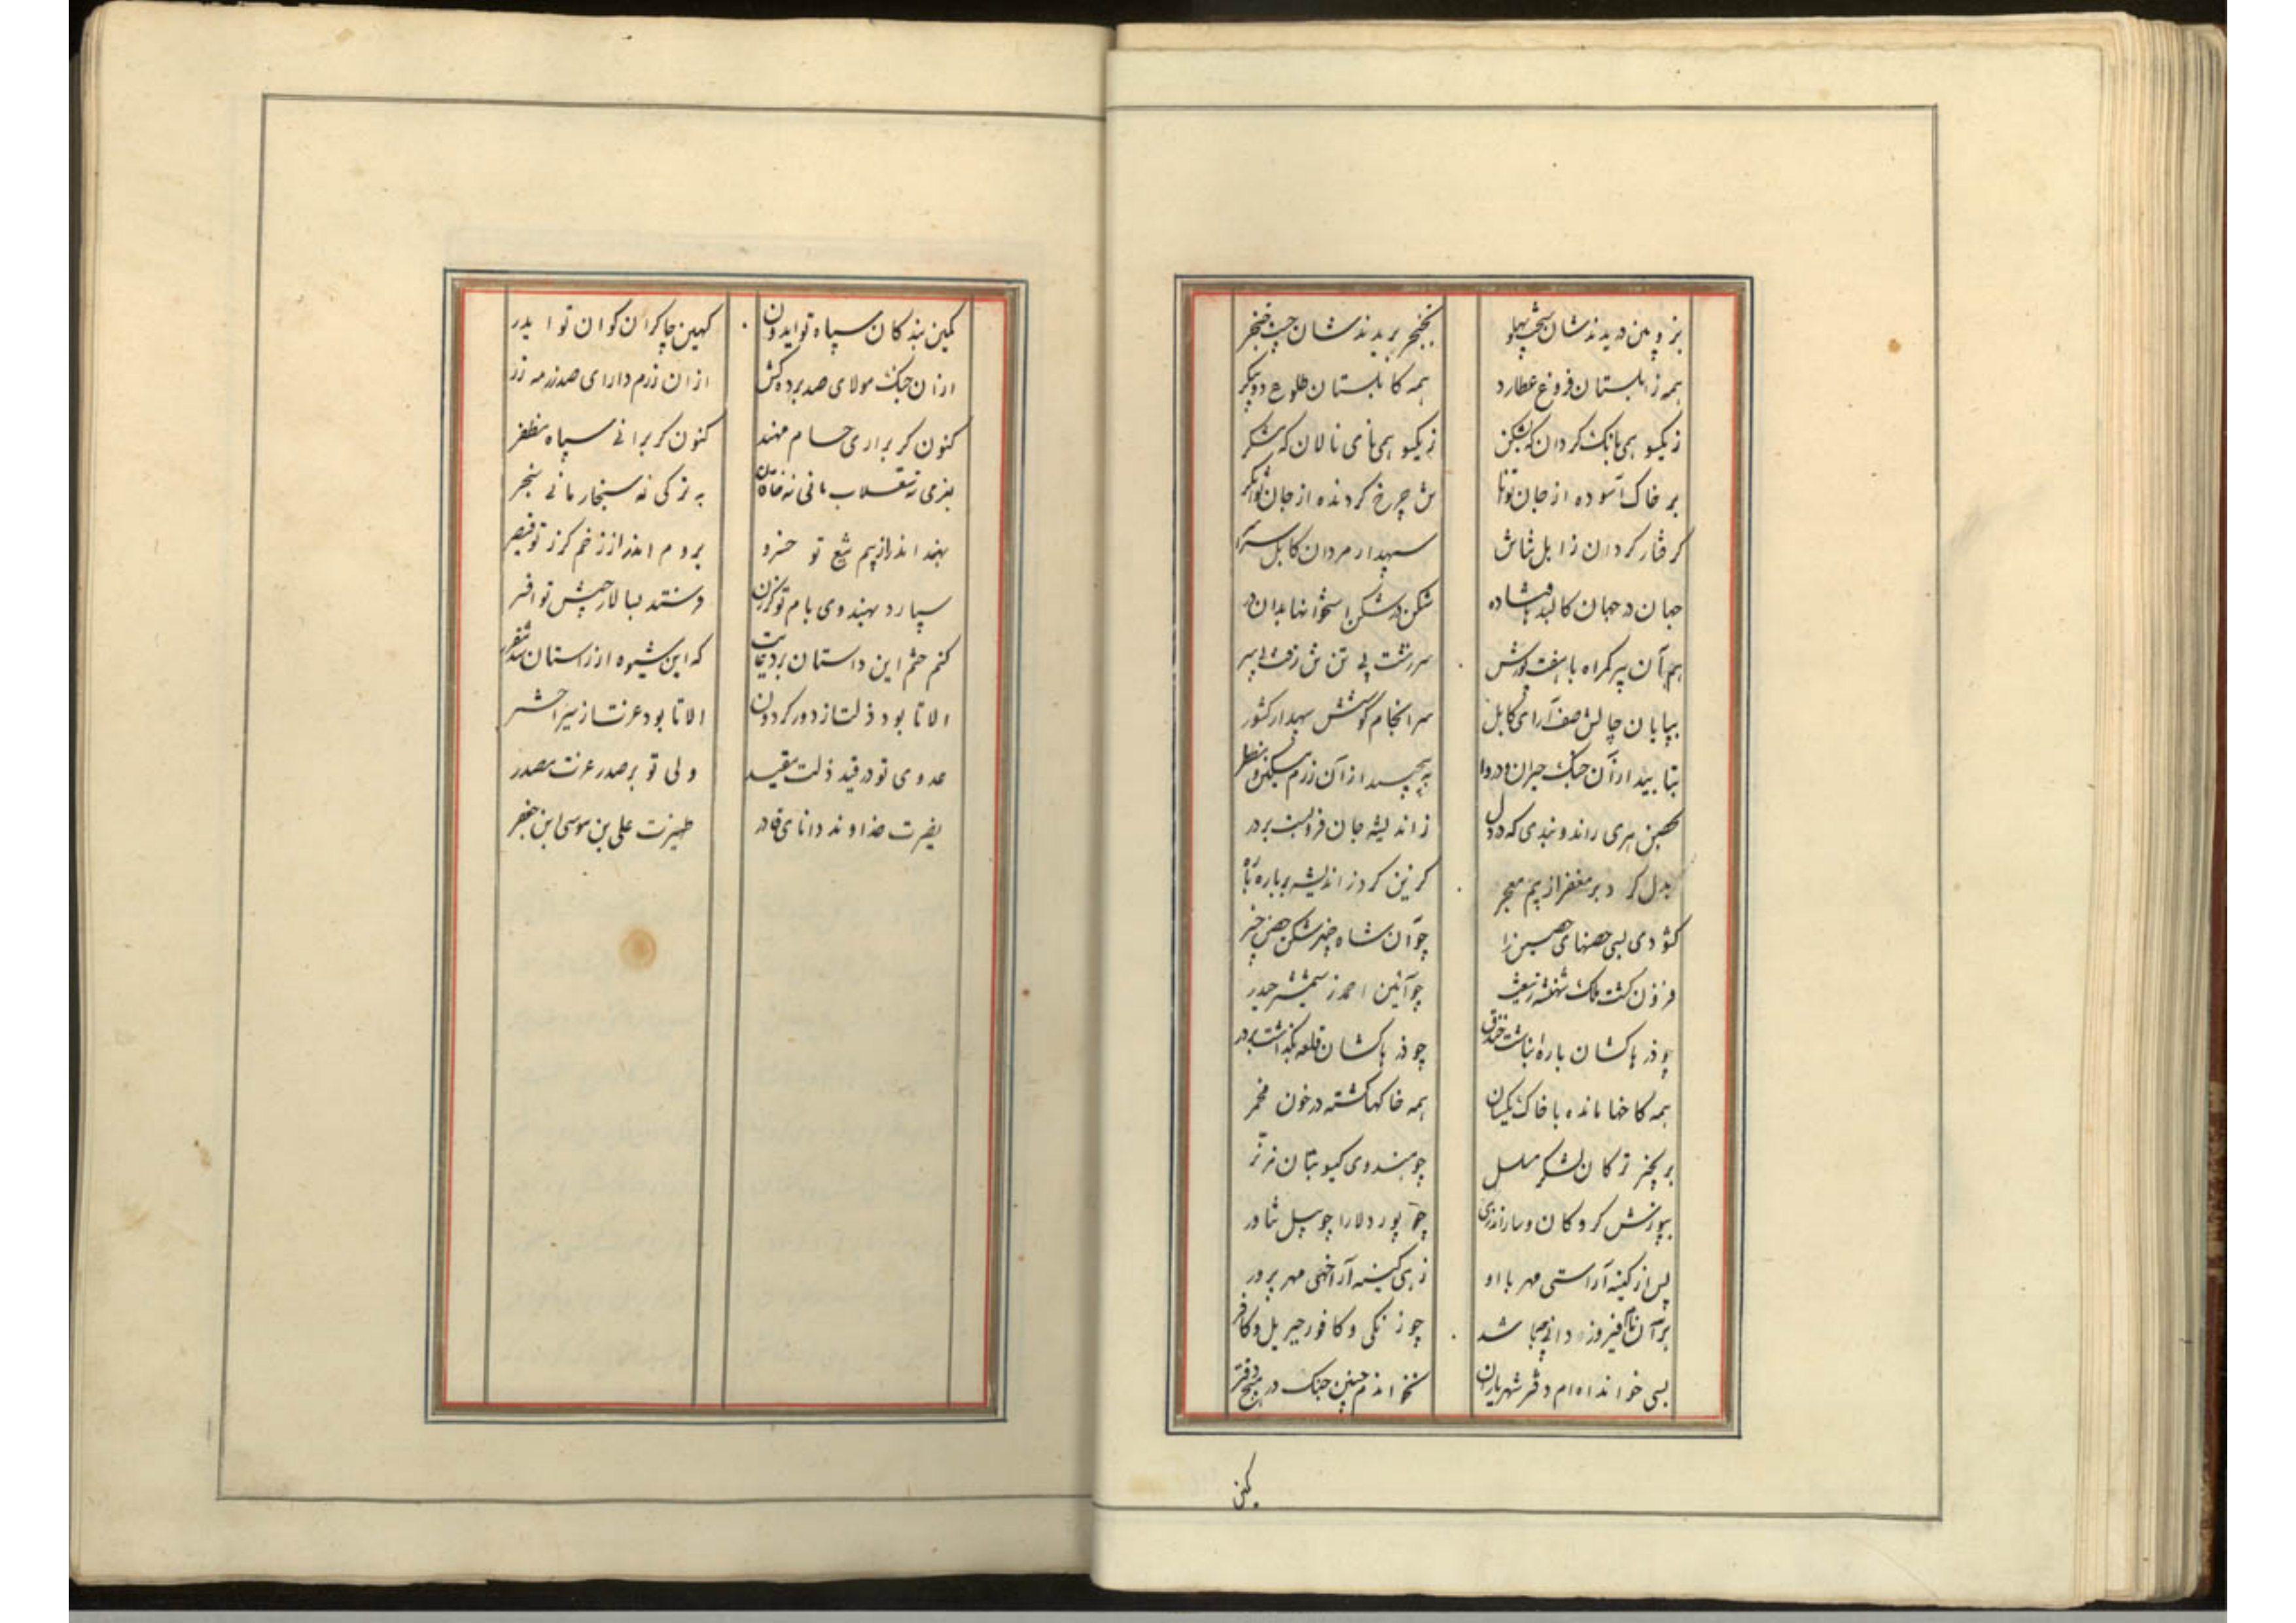 بزوپین دریدندشان سخت پهلو
بخنجر بریدندشان چست خنجر
همه زابلستان فروغ عطارد
همه کابلستان طلوع دوپیکر
زیکسو همی بانک کردان که بشکن
زیکسو همی نای نالان که بشکر
بر خاک آسوده از جان توانا
ش چرخ کردنده از جان توانکر
کرفتار کردان زابل شاش
سپهدار مردان کابل سراسر
جهان در جهان کالبد فتاده
شکن در شکن استخوانها بدان در
هم آن پیر کمراه با هفت پورش
سررشت بی تن تن زفت بی سر
بپایان چالش صف آرای کابل
سرانجام کوشش سپهدار کشور
بتابید از آن جنک حیران و دروا
به پیچید از آن رزم مسکین و مضطر
بحصن هری راند و بندی که در دل
ز اندیشه جان فروبست بر در
بدل کرد بر مغفر از بیم معجر
کزین کرد ز اندیشه بر باره یاره
کشودی بسی حصنهای حصین را
چو آن شاه خیبر شکن حصن خیبر
فزون کشت ملک شهنشه ز تیغش
چو آئین احمد ز شمشیر حیدر
چو در پاکشان باره انباشت خندق
چو در پاکشان قلعه بگذاشت بر در
همه کاخها مانده با خاک یکسان
همه خاکها کشته در خون مخمر
بر پخیر ترکان لشکر مسلسل
چو هندوی کیسو بتان
بپوزش کروکان و ساراندری
چو پور دلارا چو پیل تناور
پس از کینه آراستی مهر با او
زهی کینه آرا خهی مهرپرور
بر آن نام فیروز دانی چها شد
چو زنکی و کافور جبریل و کافر
بسی خوانده ام دفتر شهریاران
نخواندم چنین جنک در هیچ دفتر
کمین
کمین بندکان سپاه تو ایدون
کهین چاکران کوان تو ایدر
از آن جنک مولای صد برده کش
از آن رزم دارای صد رزمه زر
کنون کر برآری حسام مهند
کنون کر برانی سپاه مظفر
بغزی نه سقلاب مانی نه خاقان
به ترکی نه سنجار مانی نه سنجر
بهند اندر از بیم تیغ تو خسرو
بروم اندر از زخم کرز تو قیصر
سپارد بهندوی بام تو کرزن
فرستد بسالار جیش تو افسر
کنم ختم این داستان بر دعایت
که این شیوه از راستان
الا تا بود ذلت از دور کردون
الا تا بود عزت از سیر اختر
عدوی تو در قید ذلت مقید
ولی تو بر صدر عزت مصدر
نصیرت خداوند دانای قادر
ظهیرت علی بن موسی ابن جعفر